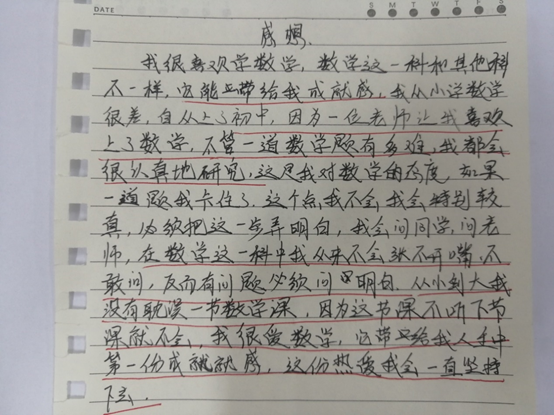 DATE
S M T W T F S
感想.
我很喜欢学数学，数学这一科和其他科
不一样，它能带给我成就感，我从小学数学
很差，自从上了初中，因为一位老师让我喜欢
上了数学，不管一道数学题有多难，我都会
很认真地研究，这是我对数学的态度. 如果
一道题我卡住了. 这个点，我不会，我会特别较
真，必须把这一步弄明白，我会问同学，问老
师，在数学这一科中我从来不会张不开嘴，不
敢问，反而有问题必须问明白. 从小到大我
没有耽误一节数学课，因为这节课不听下节
课就不会，我很爱数学，它带给我人生中
第一份成就就感，这份热爱我会一直坚持
下去.